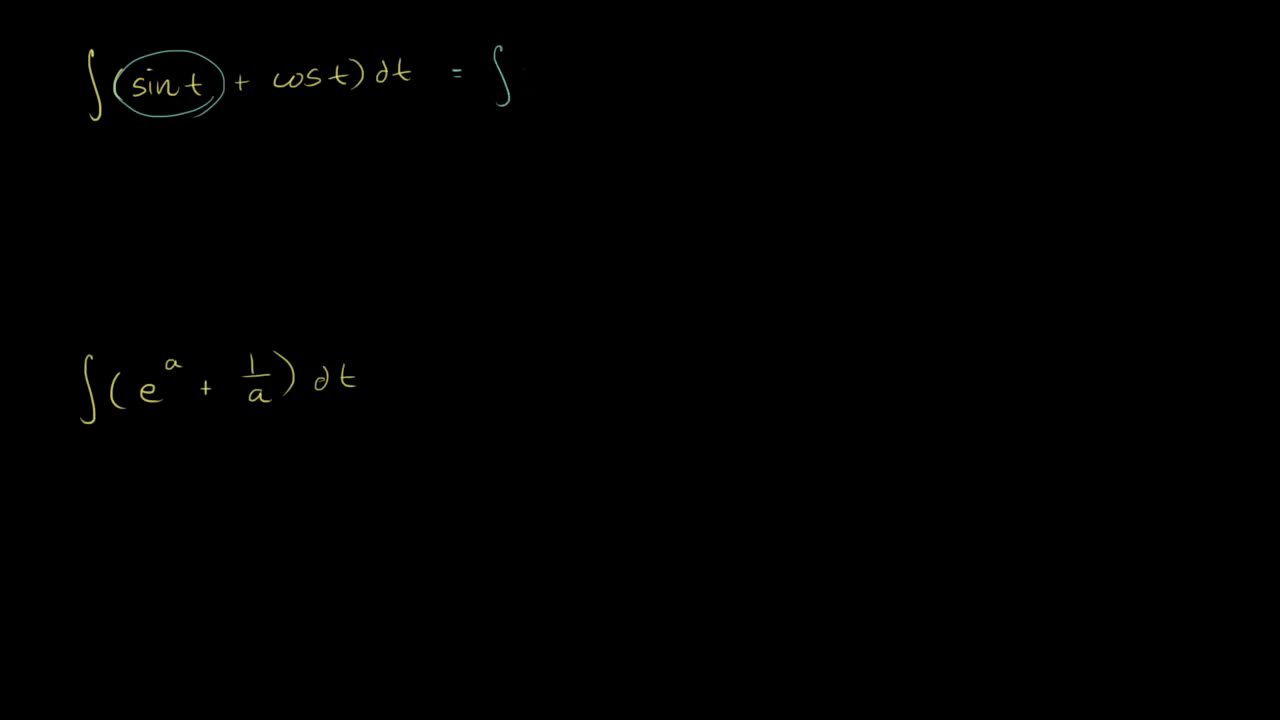 ∫(sin t + cos t) dt = ∫
∫(e^a + 1/a) dt